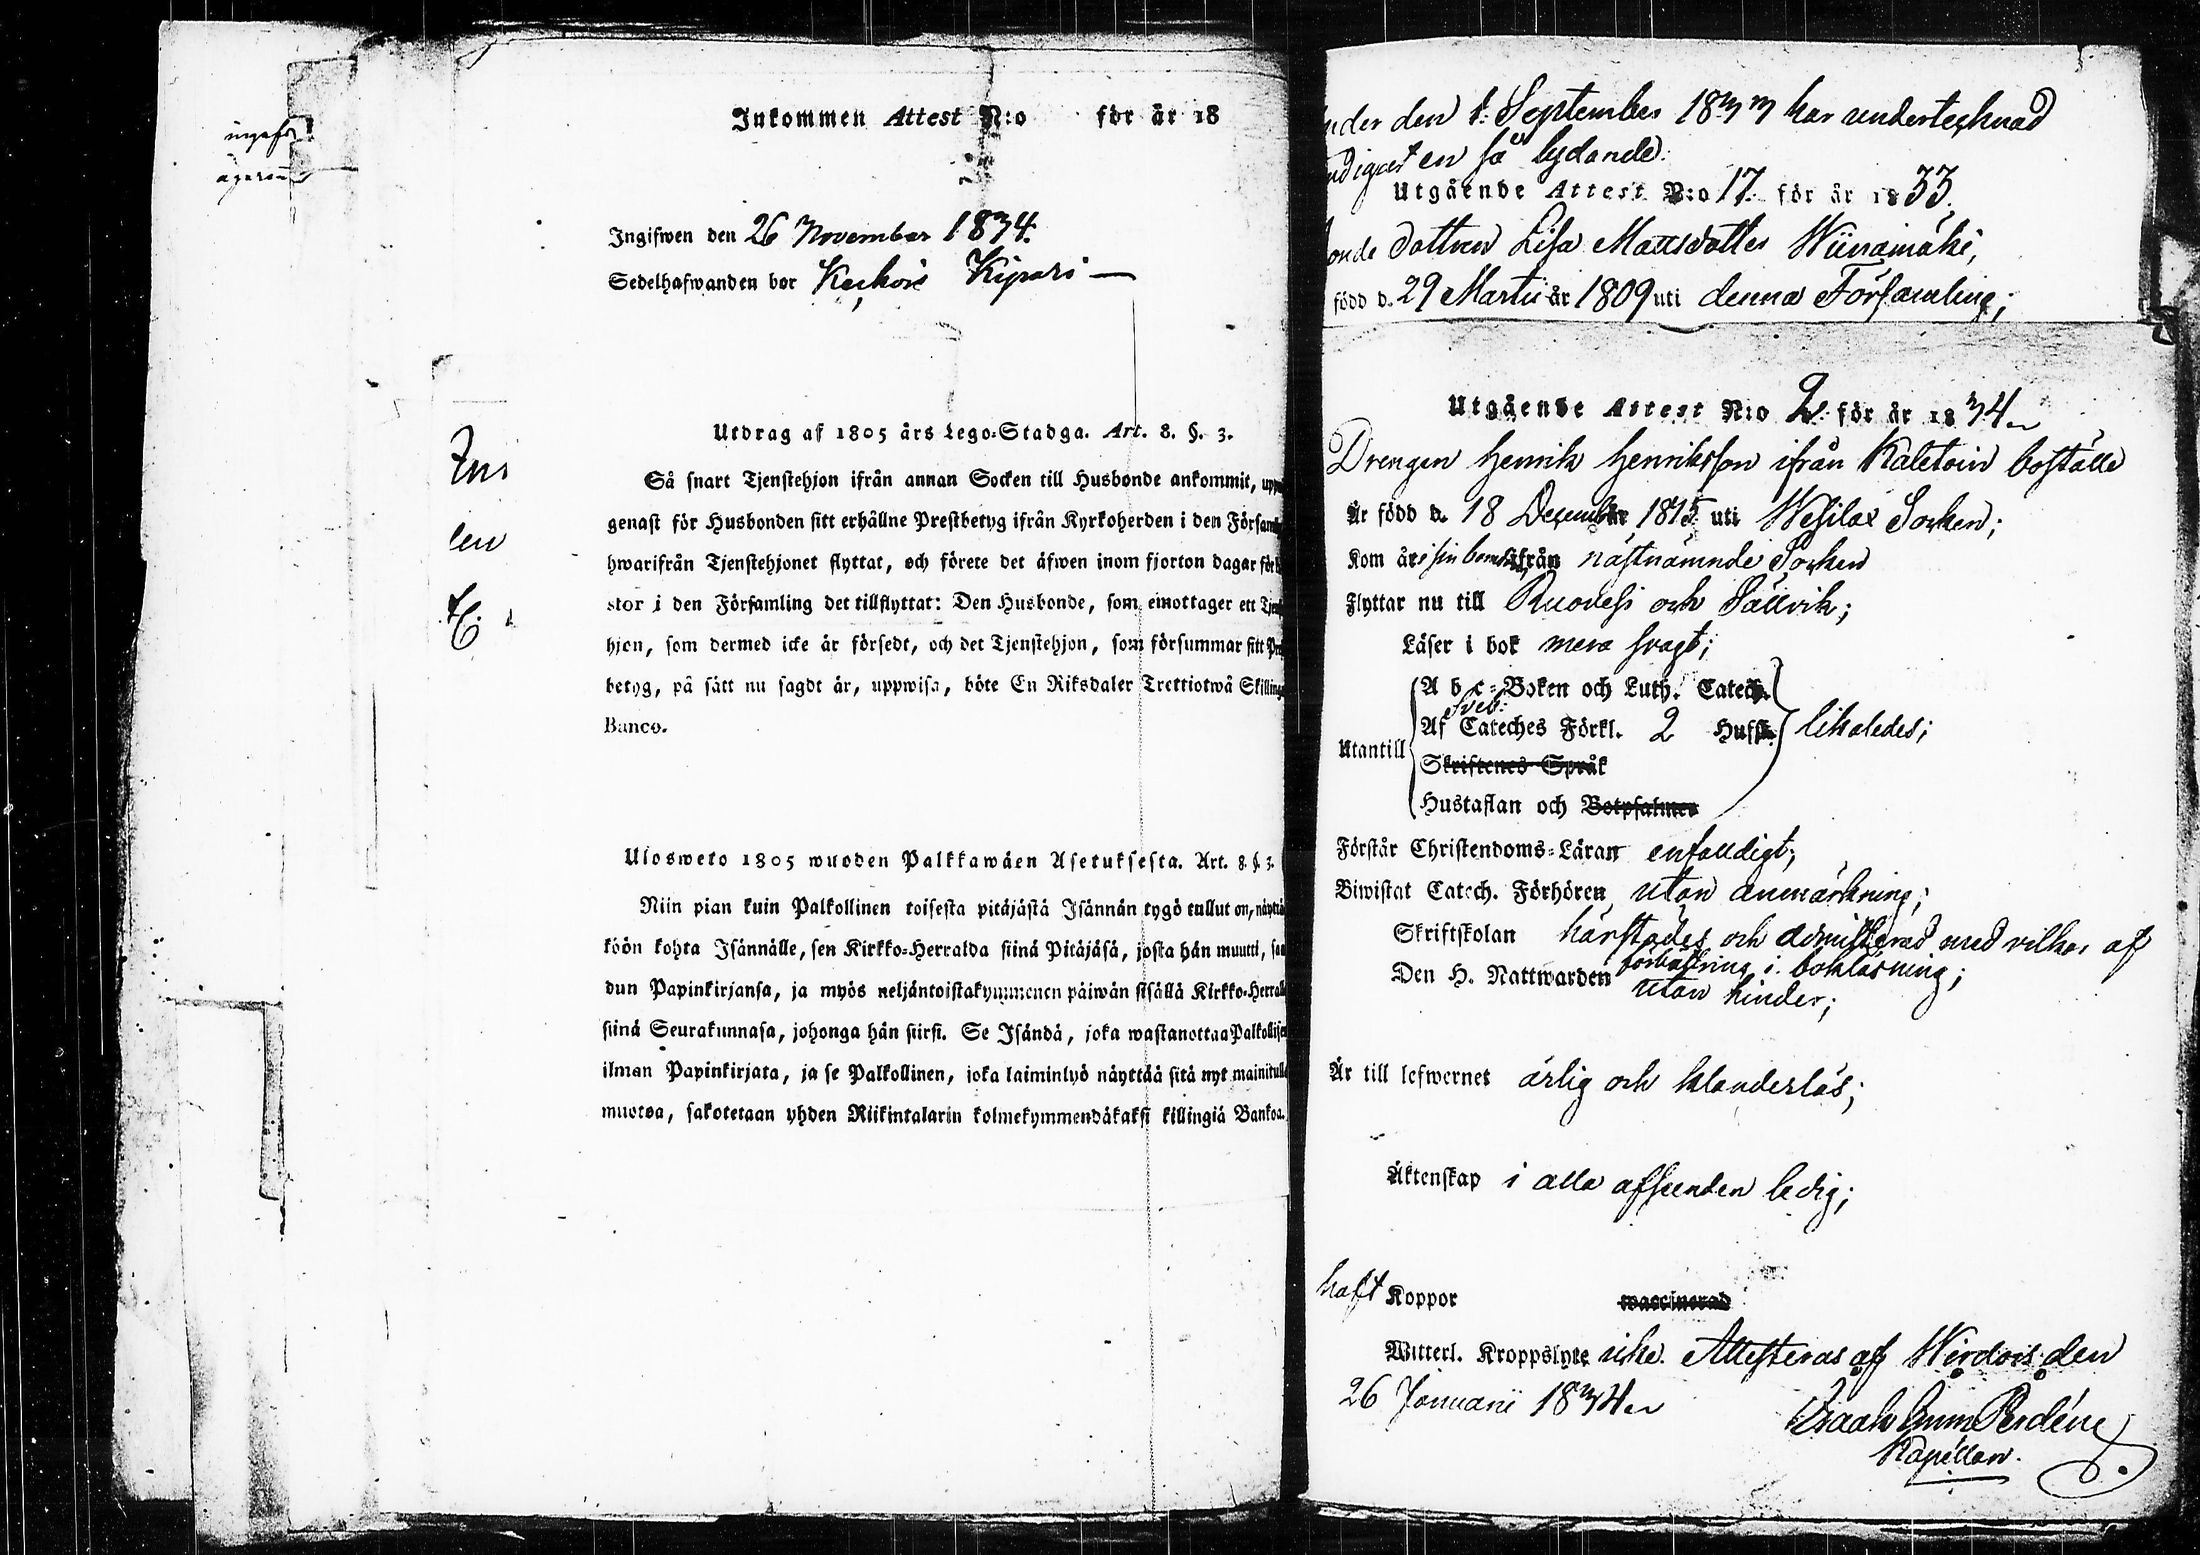 Inkommen Attest N:o för år 18
Ingifwen den 26 November 1834.
Sedelhafwanden bor Keihois Kipari
Utdrag af 1805 års Lego-Stadga. Art. 8. §. 3.
Så snart Tjenstehjon ifrån annan Socken till Husbonde ankommit,
genast för Husbonden sitt erhållne Prestbetyg ifrån Kyrkoherden i den
hwarifrån Tjenstehjonet flyttat, och förete det äfwen inom fjorton dagar
stor i den Församling det tillflyttat: Den Husbonde, som emottager ett
hjon, som dermed icke är försedt, och det Tjenstehjon, som försummar sitt
betyg, på sätt nu sagdt är, uppwisa, böte En Riksdaler Trettiotwå
Banco.
Ulosweto 1805 wuoden Palkkawäen Asetuksesta. Art. 8. §. 3.
Niin pian kuin Palkollinen toisesta pitäjästä Isännän tygö tullut on,
köön kohta Isännälle, sen Kirkko-Herralda siinä Pitäjäsä, josta hän muutti,
dun Papinkirjansa, ja myös neljäntoistakymmenen päiwän sisällä
siinä Seurakunnasa, johonga hän siirsi. Se Isändä, joka wastanottaa
ilman Papinkirjata, ja se Palkollinen, joka laiminlyö näyttää sitä nyt
muotoa, sakotetaan yhden Riikintalarin kolmekymmendäkaksi killingiä Bankoa.
den 1. September 1833 har undertecknad
en så lydande:
Utgående Attest N:o 17. för år 1833.
dottren Lisa Mattsdotter Wiinamäki,
född d. 29 Martii år 1809 uti denna Församling;
Utgående Attest N:o 2. för år 1834
Drengen Henrik Henriksson ifrån Kaletoin boställe
Är född d. 18 December 1815 uti Wesilax Socken;
Kom år i sin barndom ifrån nästnämnde Socken
Flyttar nu till Ruovesi och Sällvik;
Läser i bok mera svagt;
A b c-Boken och Luth. Catech.
Sveb:
Af Cateches Förkl. 2 Hufst. likaledes;
Utantill
Skriftenes Språk
Hustaflan och Botpsalmen
Förstår Christendoms-Läran enfaldigt;
Biwistat Catech. Förhören utan anmärkning;
Skriftskolan härstädes och admitterad med vilkor af
förbättring i bokläsning;
Den H. Nattwarden utan hinder;
Är till lefwernet ärlig och klanderlös;
Äktenskap i alla afseenden ledig;
haft Koppor waccinerad
Witterl. Kroppslyte icke. Attesteras af Wirdois den
26 Januarii 1834
Isaak Perdén
Kapellan.